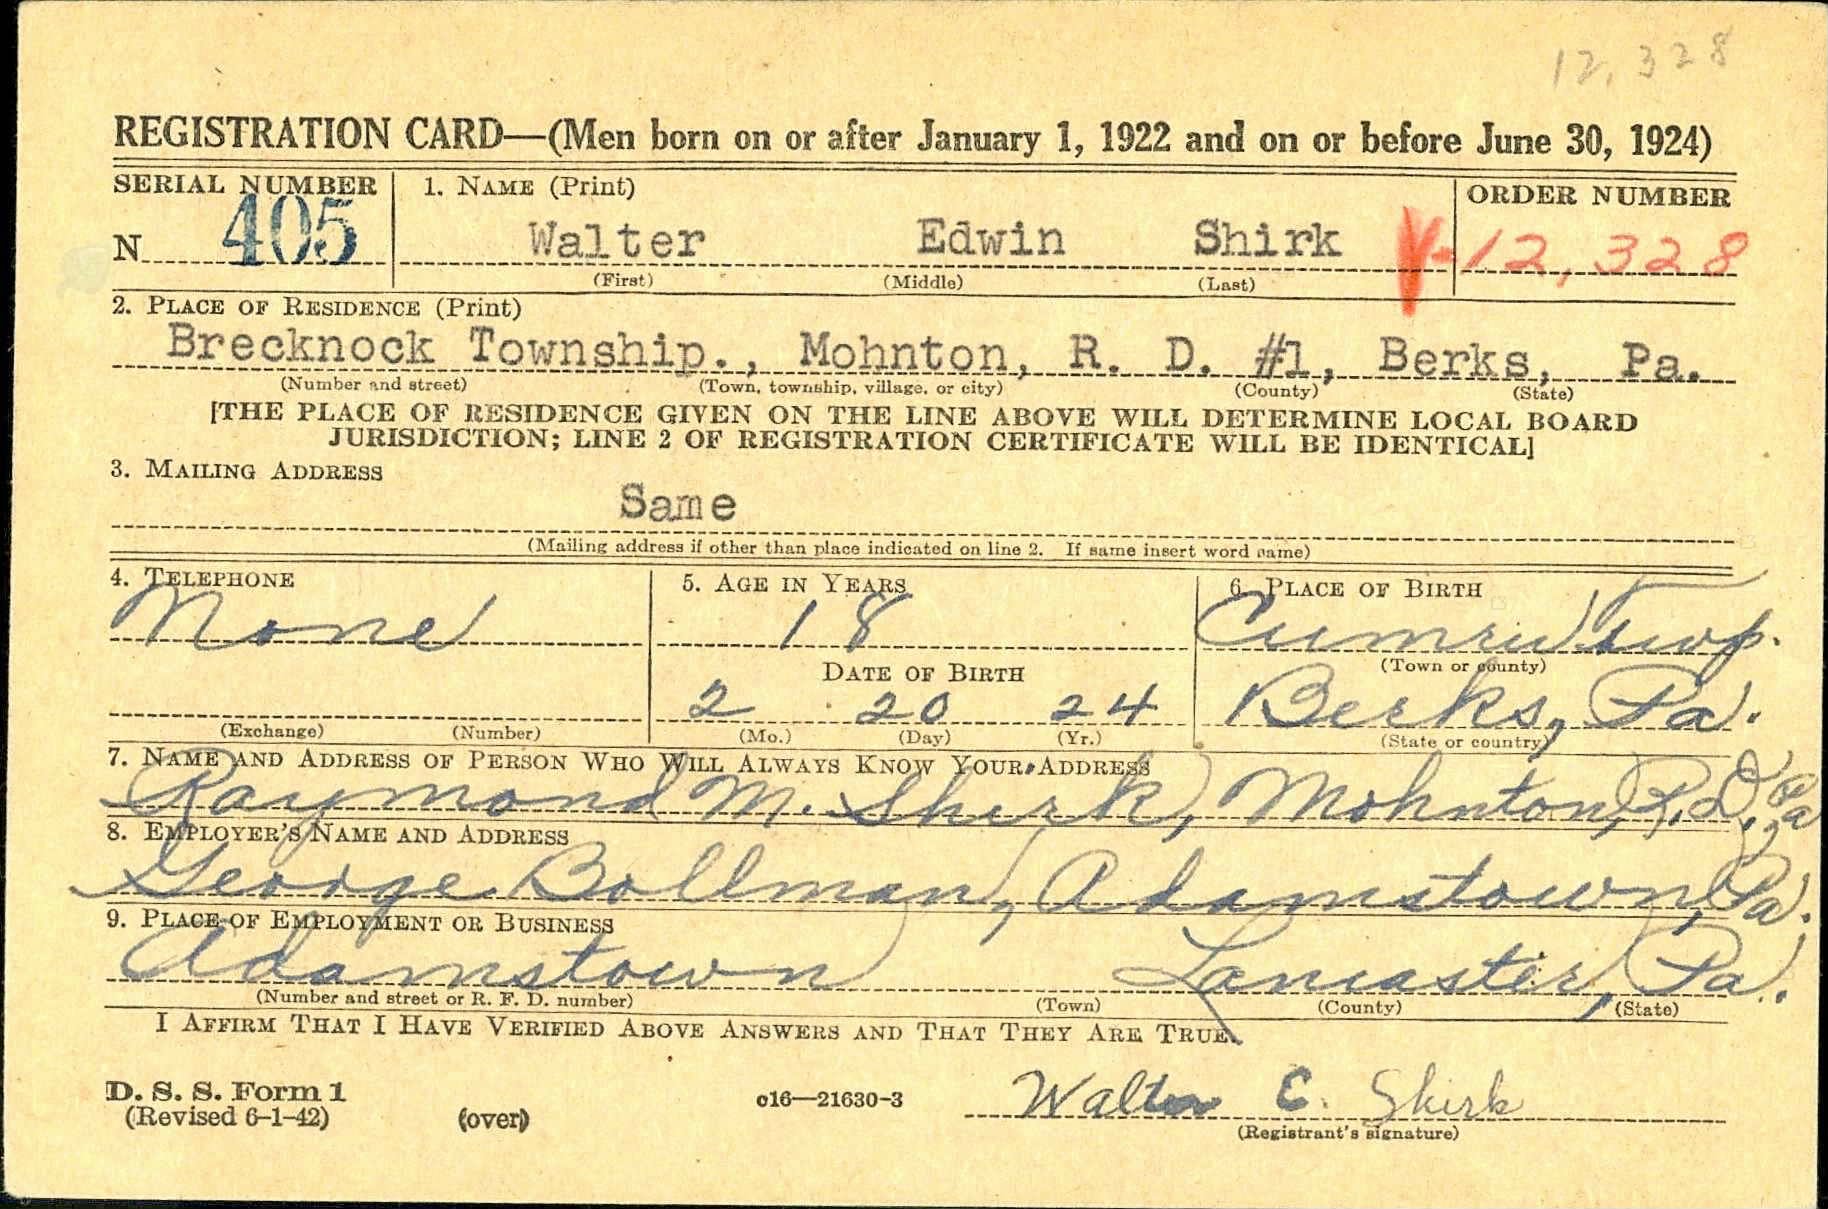 12,328
REGISTRATION CARD—(Men born on or after January 1, 1922 and on or before June 30, 1924)
SERIAL NUMBER 1. NAME (Print) ORDER NUMBER
N 405 Walter Edwin Shirk V-12,328
(First) (Middle) (Last)
2. PLACE OF RESIDENCE (Print)
Brecknock Township., Mohnton, R. D. #1, Berks, Pa.
(Number and street) (Town, township, village, or city) (County) (State)
[THE PLACE OF RESIDENCE GIVEN ON THE LINE ABOVE WILL DETERMINE LOCAL BOARD
JURISDICTION; LINE 2 OF REGISTRATION CERTIFICATE WILL BE IDENTICAL]
3. MAILING ADDRESS
Same
(Mailing address if other than place indicated on line 2. If same insert word same)
4. TELEPHONE 5. AGE IN YEARS 6. PLACE OF BIRTH
None 18 Cumru Twp.
DATE OF BIRTH (Town or county)
2 20 24 Berks, Pa.
(Exchange) (Number) (Mo.) (Day) (Yr.) (State or country)
7. NAME AND ADDRESS OF PERSON WHO WILL ALWAYS KNOW YOUR ADDRESS
Raymond M. Shirk, Mohnton, R.D., Pa
8. EMPLOYER'S NAME AND ADDRESS
George Bollman, Adamstown, Pa.
9. PLACE OF EMPLOYMENT OR BUSINESS
Adamstown Lancaster, Pa.
(Number and street or R. F. D. number) (Town) (County) (State)
I AFFIRM THAT I HAVE VERIFIED ABOVE ANSWERS AND THAT THEY ARE TRUE.
D. S. S. Form 1
(Revised 6-1-42) (over) c16—21630-3 Walter E. Shirk
(Registrant's signature)